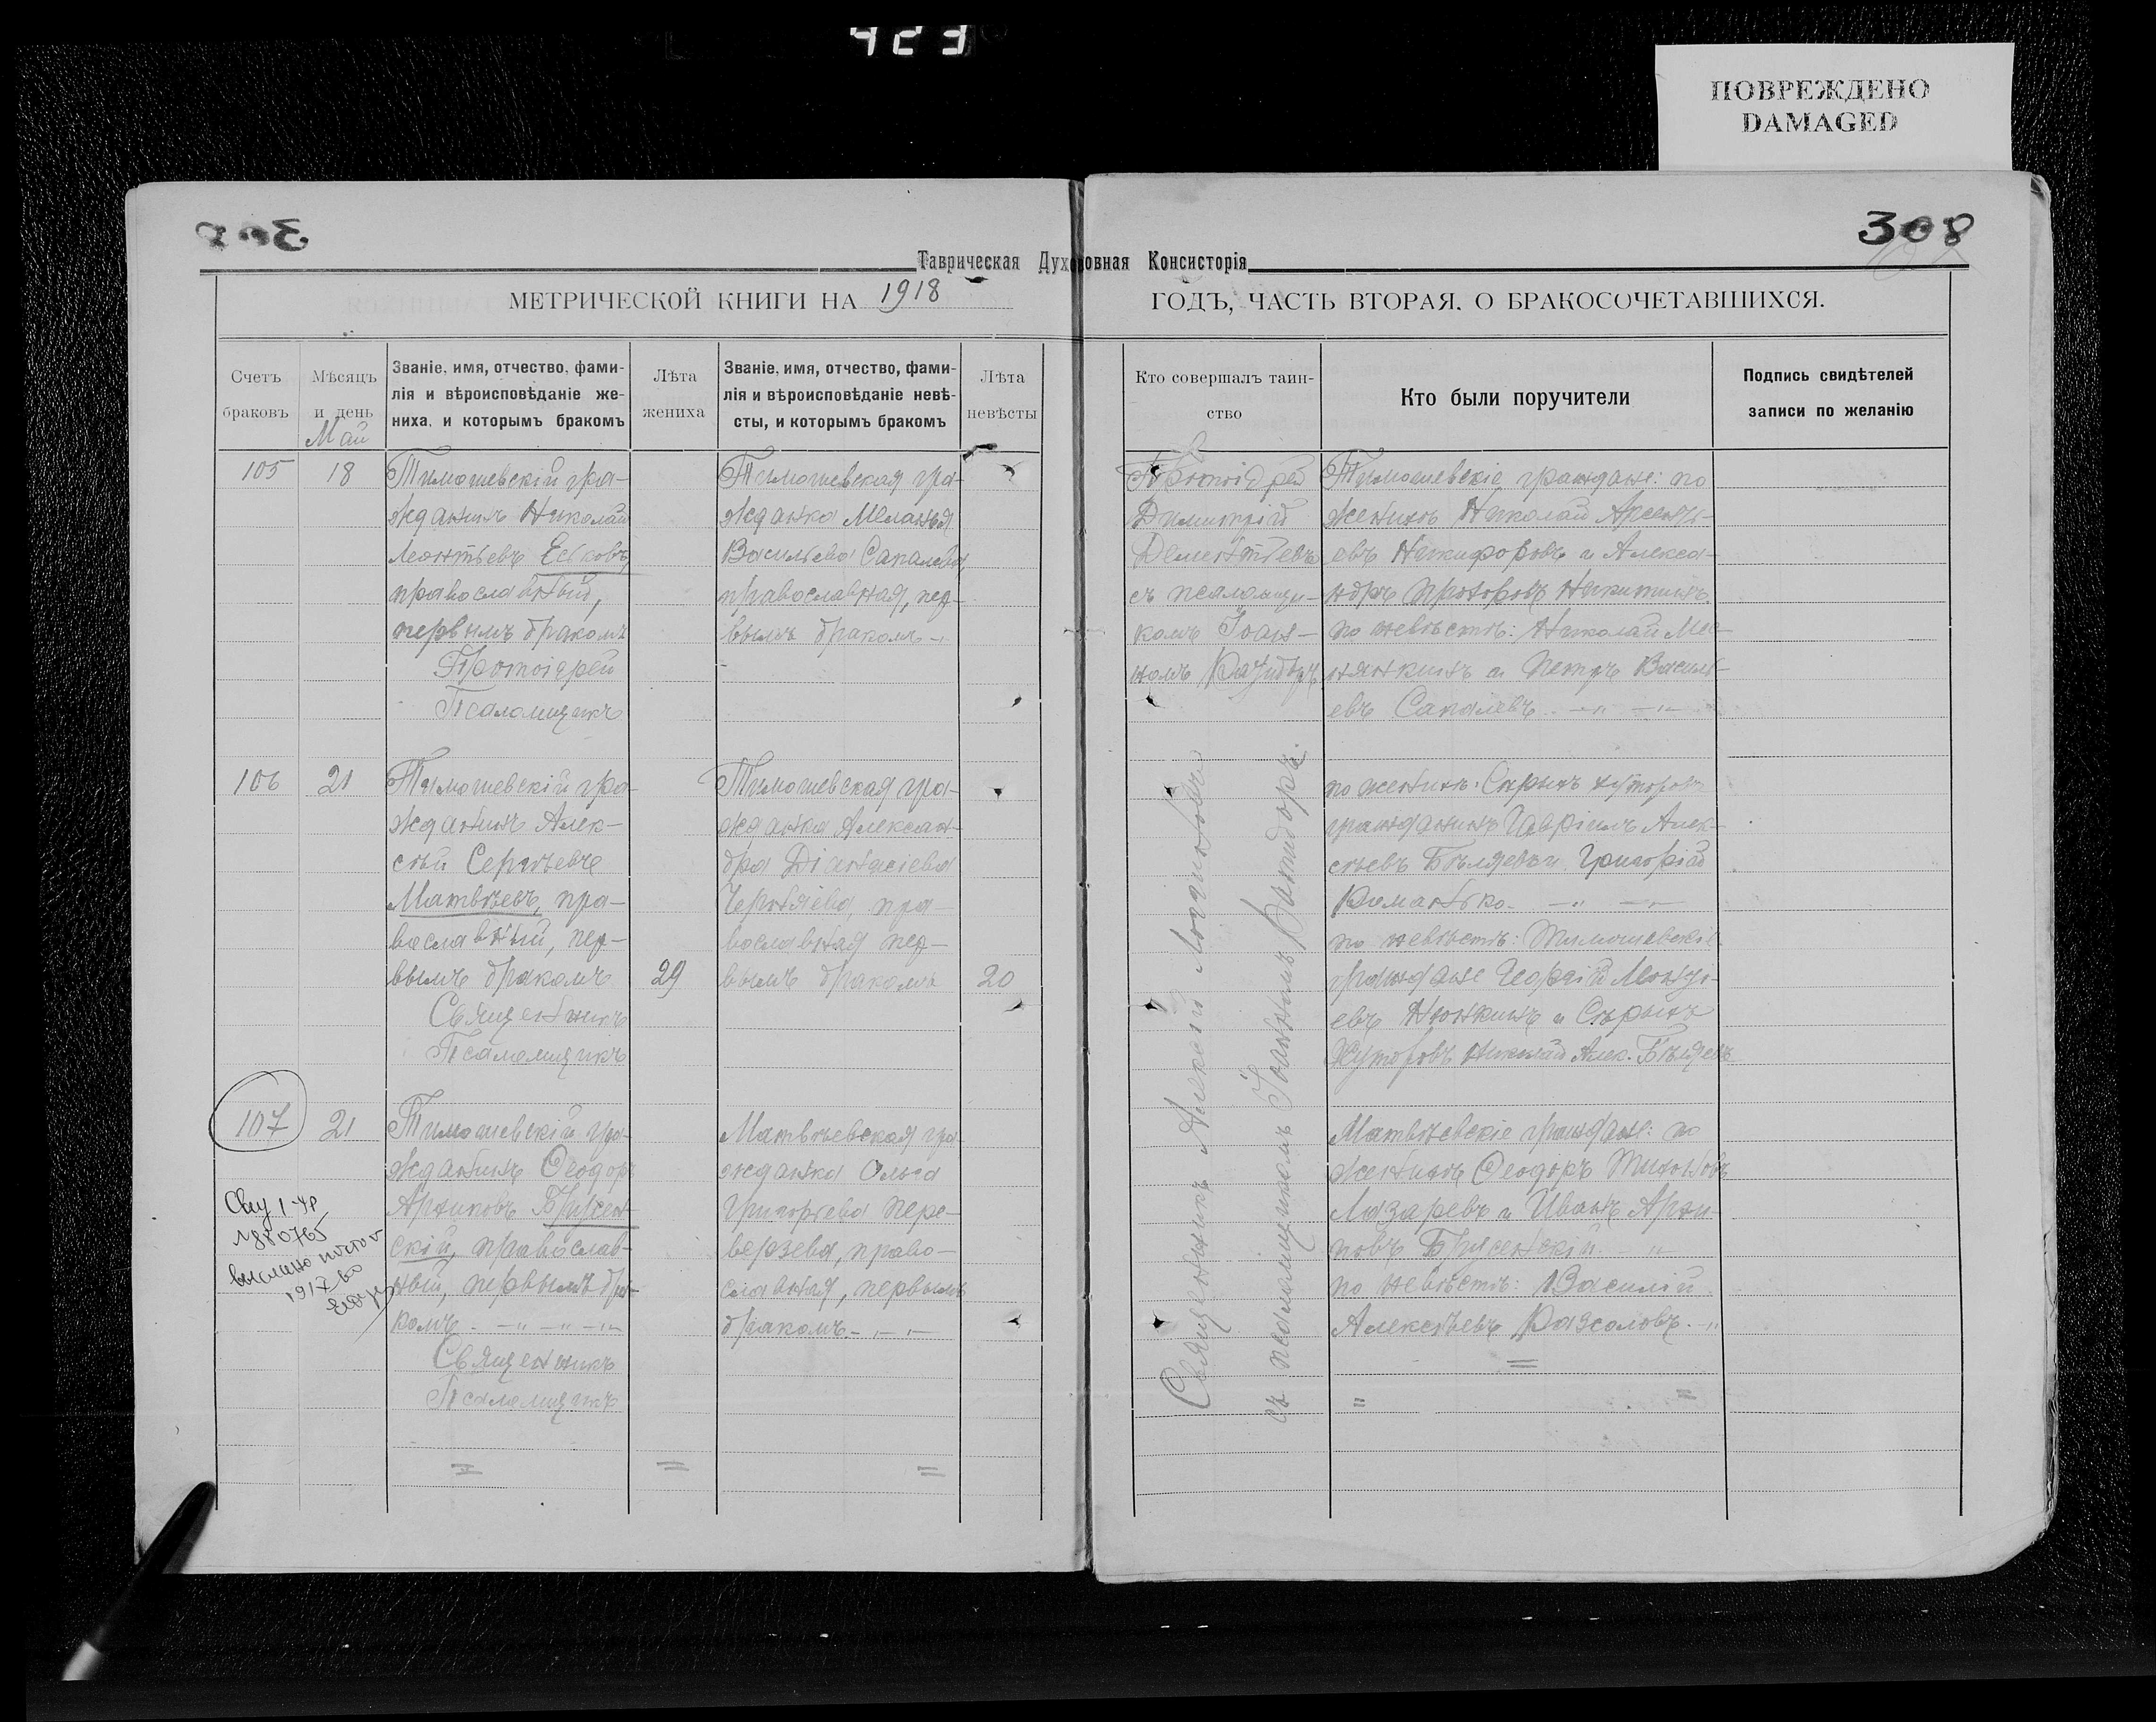 ПОВРЕЖДЕНО
DAMAGED
308
Таврическая Духовная Консисторія
МЕТРИЧЕСКОЙ КНИГИ НА 1918 ГОДЪ, ЧАСТЬ ВТОРАЯ, О БРАКОСОЧЕТАВШИХСЯ.
Счетъ
браковъ
Мѣсяцъ
и день
Май
Званіе, имя, отчество, фами-
лія и вѣроисповѣданіе же-
ниха, и которымъ бракомъ
Лѣта
жениха
Званіе, имя, отчество, фами-
лія и вѣроисповѣданіе невѣ-
сты, и которымъ бракомъ
Лѣта
невѣсты
Кто совершалъ таин-
ство
Кто были поручители
Подпись свидѣтелей
записи по желанію
105
18
Тимошевскій гра-
жданинъ Николай
Леонтьевъ Еськовъ,
православный,
первымъ бракомъ
Протоіерей
Псаломщикъ
Тимошевская гра-
жданка Меланья
Васильева Сапалева,
православная, пер-
вымъ бракомъ
Протоіерей
Димитрій
Дементьевъ
съ псаломщи-
комъ Іоан-
номъ
Тимошевскіе граждане: по
женихѣ Николай Арсень-
евъ Никифоровъ и Алекса-
ндръ Прохоровъ Никитинъ.
по невѣстѣ: Николай
и Петръ Василь-
евъ Сапалевъ
106
21
Тимошевскій гра-
жданинъ Алек-
сѣй Сергѣевъ
Матвѣевъ, пра-
вославный, пер-
вымъ бракомъ
Священникъ
Псаломщикъ
29
Тимошевская гра-
жданка Алексан-
дра Діонисіева
Черняева, пра-
вославная пер-
вымъ бракомъ
20
по женихѣ: Сѣрыхъ хуторовъ
гражданинъ Гавріилъ Алек-
сѣевъ Бѣляевъ и Григорій
Романько
по невѣстѣ: Тимошевскіе
граждане Георгій
евъ и Сѣрыхъ
Хуторовъ Николай Алек. Бѣляевъ
107
21
Тимошевскій гра-
жданинъ Ѳеодоръ
Архиповъ Брусен-
скій, православ-
ный, первымъ бра-
комъ
Священникъ
Псаломщикъ
Матвѣевская гра-
жданка Ольга
Григорьева Пере-
верзева, право-
славная, первымъ
бракомъ
Священникъ Алексій
съ псаломщикомъ Іоанномъ
Матвѣевскіе граждане: по
женихѣ Ѳеодоръ Тихоновъ
Лазаревъ и Иванъ Архи-
повъ Брусенскій
по невѣстѣ: Василій
Алексѣевъ Разсоловъ